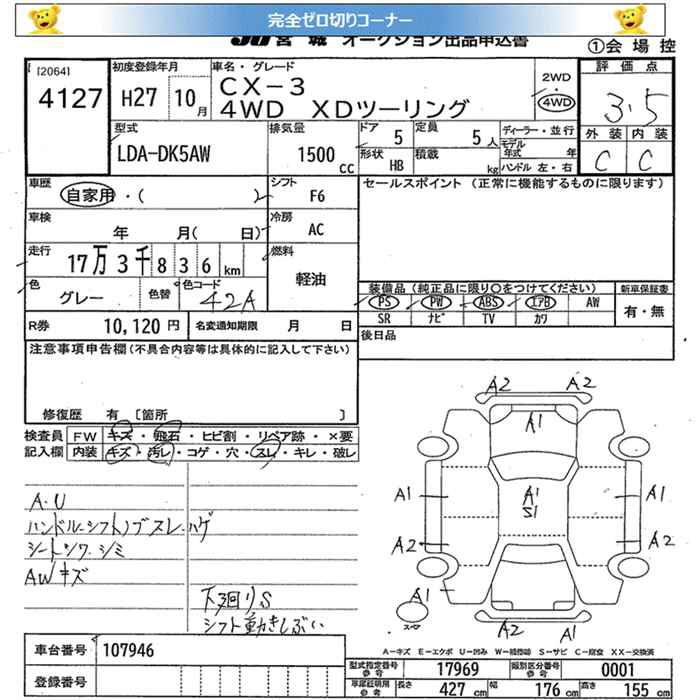 完全ゼロ切りコーナー
JU 宮 城 オークション出品申込書
①会 場 控
[2064]
4127
初度登録年月
H27 10月
車名・グレード
CX-3
4WD XDツーリング
2WD
・
4WD
評 価 点
3.5
外 装 内 装
C C
型式
LDA-DK5AW
排気量
1500 CC
ドア 5
定員 5人
ディーラー・並行
モデル年式 年
形状 HB
積載 kg
ハンドル 左・右
車歴
自家用・( )
シフト F6
セールスポイント (正常に機能するものに限ります)
車検
年 月( 日)
冷房 AC
走行
17万3千836km
燃料
軽油
色
グレー
色替
色コード
42A
装備品 (純正品に限り○をつけてください)
新車保証書
PS PW ABS エアB AW
有・無
SR ナビ TV カワ
R券 10,120 円
名変通知期限 月 日
後日品
注意事項申告欄(不具合内容等は具体的に記入して下さい)
修復歴 有 [箇所 ]
検査員 FW キズ・飛石・ヒビ割・リペア跡・×要
記入欄 内装 キズ・汚レ・コゲ・穴・スレ・キレ・破レ
A.U
ハンドル.シフトノブスレ.ハゲ
シートシワ.シミ
AWキズ
下廻りS
シフト動きしぶい
A2 A2
A1
A1 A1 A1
S1
A2 A2
A1
スペア
A2 A1
A-キズ E-エクボ U-凹み W-補修跡 S-サビ C-腐食 XX-交換済
車台番号 107946
登録番号
型式指定番号 17969
類別区分番号 0001
車庫証明用参考
長さ 427 cm
幅 176 cm
高さ 155 cm